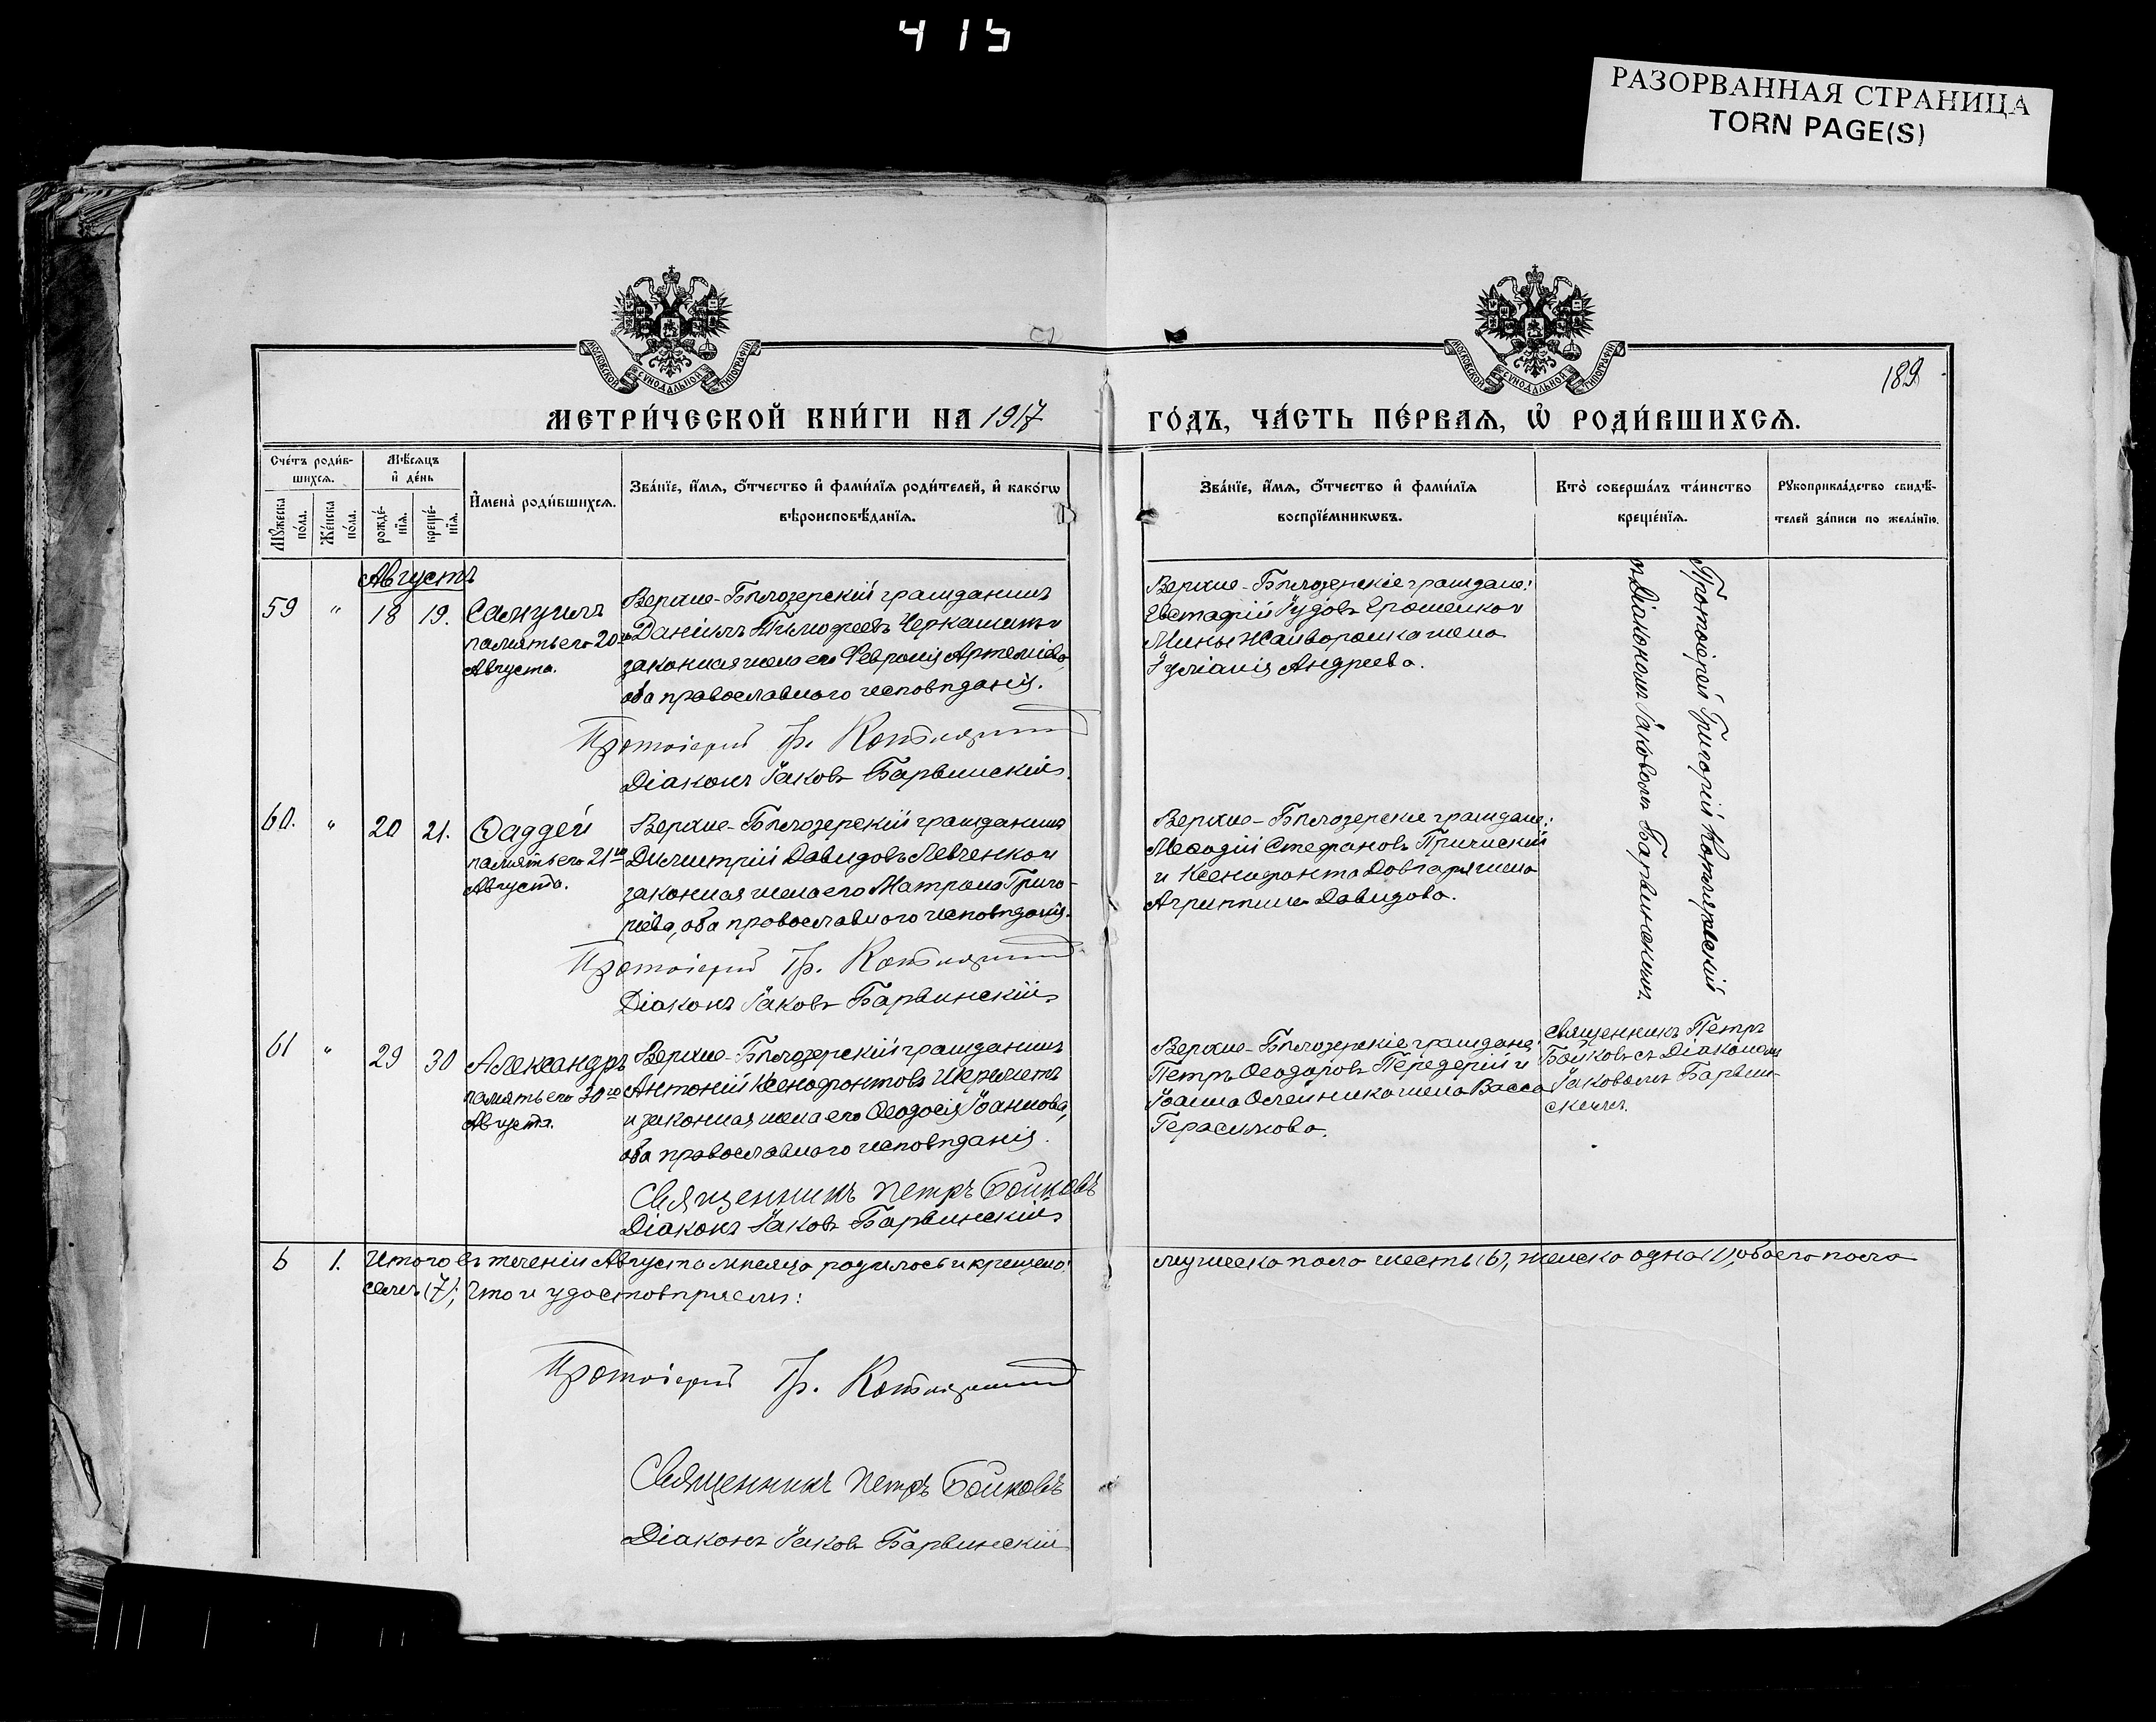 415
РАЗОРВАННАЯ СТРАНИЦА
TORN PAGE(S)
МОСКОВСКОЙ СѴНОДАЛЬНОЙ ТИПОГРАФІИ
МОСКОВСКОЙ СѴНОДАЛЬНОЙ ТИПОГРАФІИ
189
МЕТРИ́ЧЕСКОЙ КНИ́ГИ НА 1917
ГО́ДЪ, ЧА́СТЬ ПЕ́РВАѦ, Ѽ РОДИ́ВШИХСѦ.
Сче́тъ роди́в-
шихсѧ.
Мѣ́сѧцъ
и҆ де́нь
Мꙋ́жеска
по́ла.
Же́нска
по́ла.
рожде́-
нїѧ.
креще́-
нїѧ.
И҆мена̀ роди́вшихсѧ.
Зва́нїе, и҆́мѧ, ѻ҆́тчество и҆ фами́лїѧ роди́телей, и҆ како́гѡ
вѣроисповѣ́данїѧ.
Зва́нїе, и҆́мѧ, ѻ҆́тчество и҆ фами́лїѧ
воспрїе́мникѡвъ.
Кто̀ соверша́лъ та́инство
креще́нїѧ.
Рꙋкоприкла́дство свидѣ́-
телей за́писи по жела́нїю.
Августъ
59 " 18 19.
Самуилъ
память его 20го
Августа.
Верхне-Бѣлозерскій гражданинъ
Даніилъ Тимофеевъ Черкашинъ и
законная жена его Февронія Артеміева,
оба православнаго исповѣданія.
Протоіерей Гр. Котляревскій
Діаконъ Іаковъ Барвинскій
Верхне-Бѣлозерскіе граждане:
Евстафій Іудовъ Ерошенко и
Мины Жайворонка жена
Іуліанія Андреева.
Протоіерей Григорій Котляревскій
съ Діакономъ Іаковомъ Барвинскимъ.
60. " 20 21.
Ѳаддей
память его 21го
Августа.
Верхне-Бѣлозерскій гражданинъ
Димитрій Давидовъ Левченко и
законная жена его Матрона Григо-
ріева, оба православнаго исповѣданія.
Протоіерей Гр. Котляревскій
Діаконъ Іаковъ Барвинскій
Верхне-Бѣлозерскіе граждане:
Меѳодій Стефановъ
и Ксенофонта Довгаря жена
Агриппина Давидова.
61 " 29 30
Александръ
память его 30го
Августа.
Верхне-Бѣлозерскій гражданинъ
Антоній Ксенофонтовъ
и законная жена его Ѳеодосія Іоаннова,
оба православнаго исповѣданія.
Священникъ Петръ Бойковъ
Діаконъ Іаковъ Барвинскій
Верхне-Бѣлозерскіе граждане:
Петръ Ѳеодоровъ Передерій и
Іоанна Олейника жена Васса
Герасимова.
Священникъ Петръ
Бойковъ съ Діакономъ
Іаковомъ Барвин-
скимъ.
6 1. Итого въ теченіи Августа мѣсяца родилось и крещено: мужеска пола шесть (6), женска одна (1), обоего пола
семь (7); что и удостовѣряемъ:
Протоіерей Гр. Котляревскій
Священникъ Петръ Бойковъ
Діаконъ Іаковъ Барвинскій